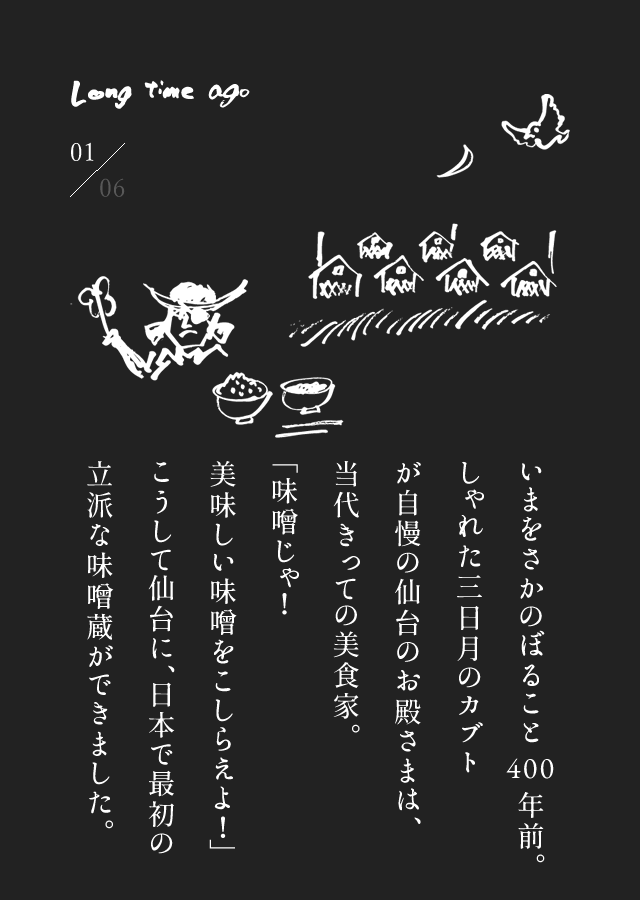 Long time ago
01
06
いまをさかのぼること400年前。
しゃれた三日月のカブト
が自慢の仙台のお殿さまは、
当代きっての美食家。
「味噌じゃ！
美味しい味噌をこしらえよ！」
こうして仙台に、日本で最初の
立派な味噌蔵ができました。